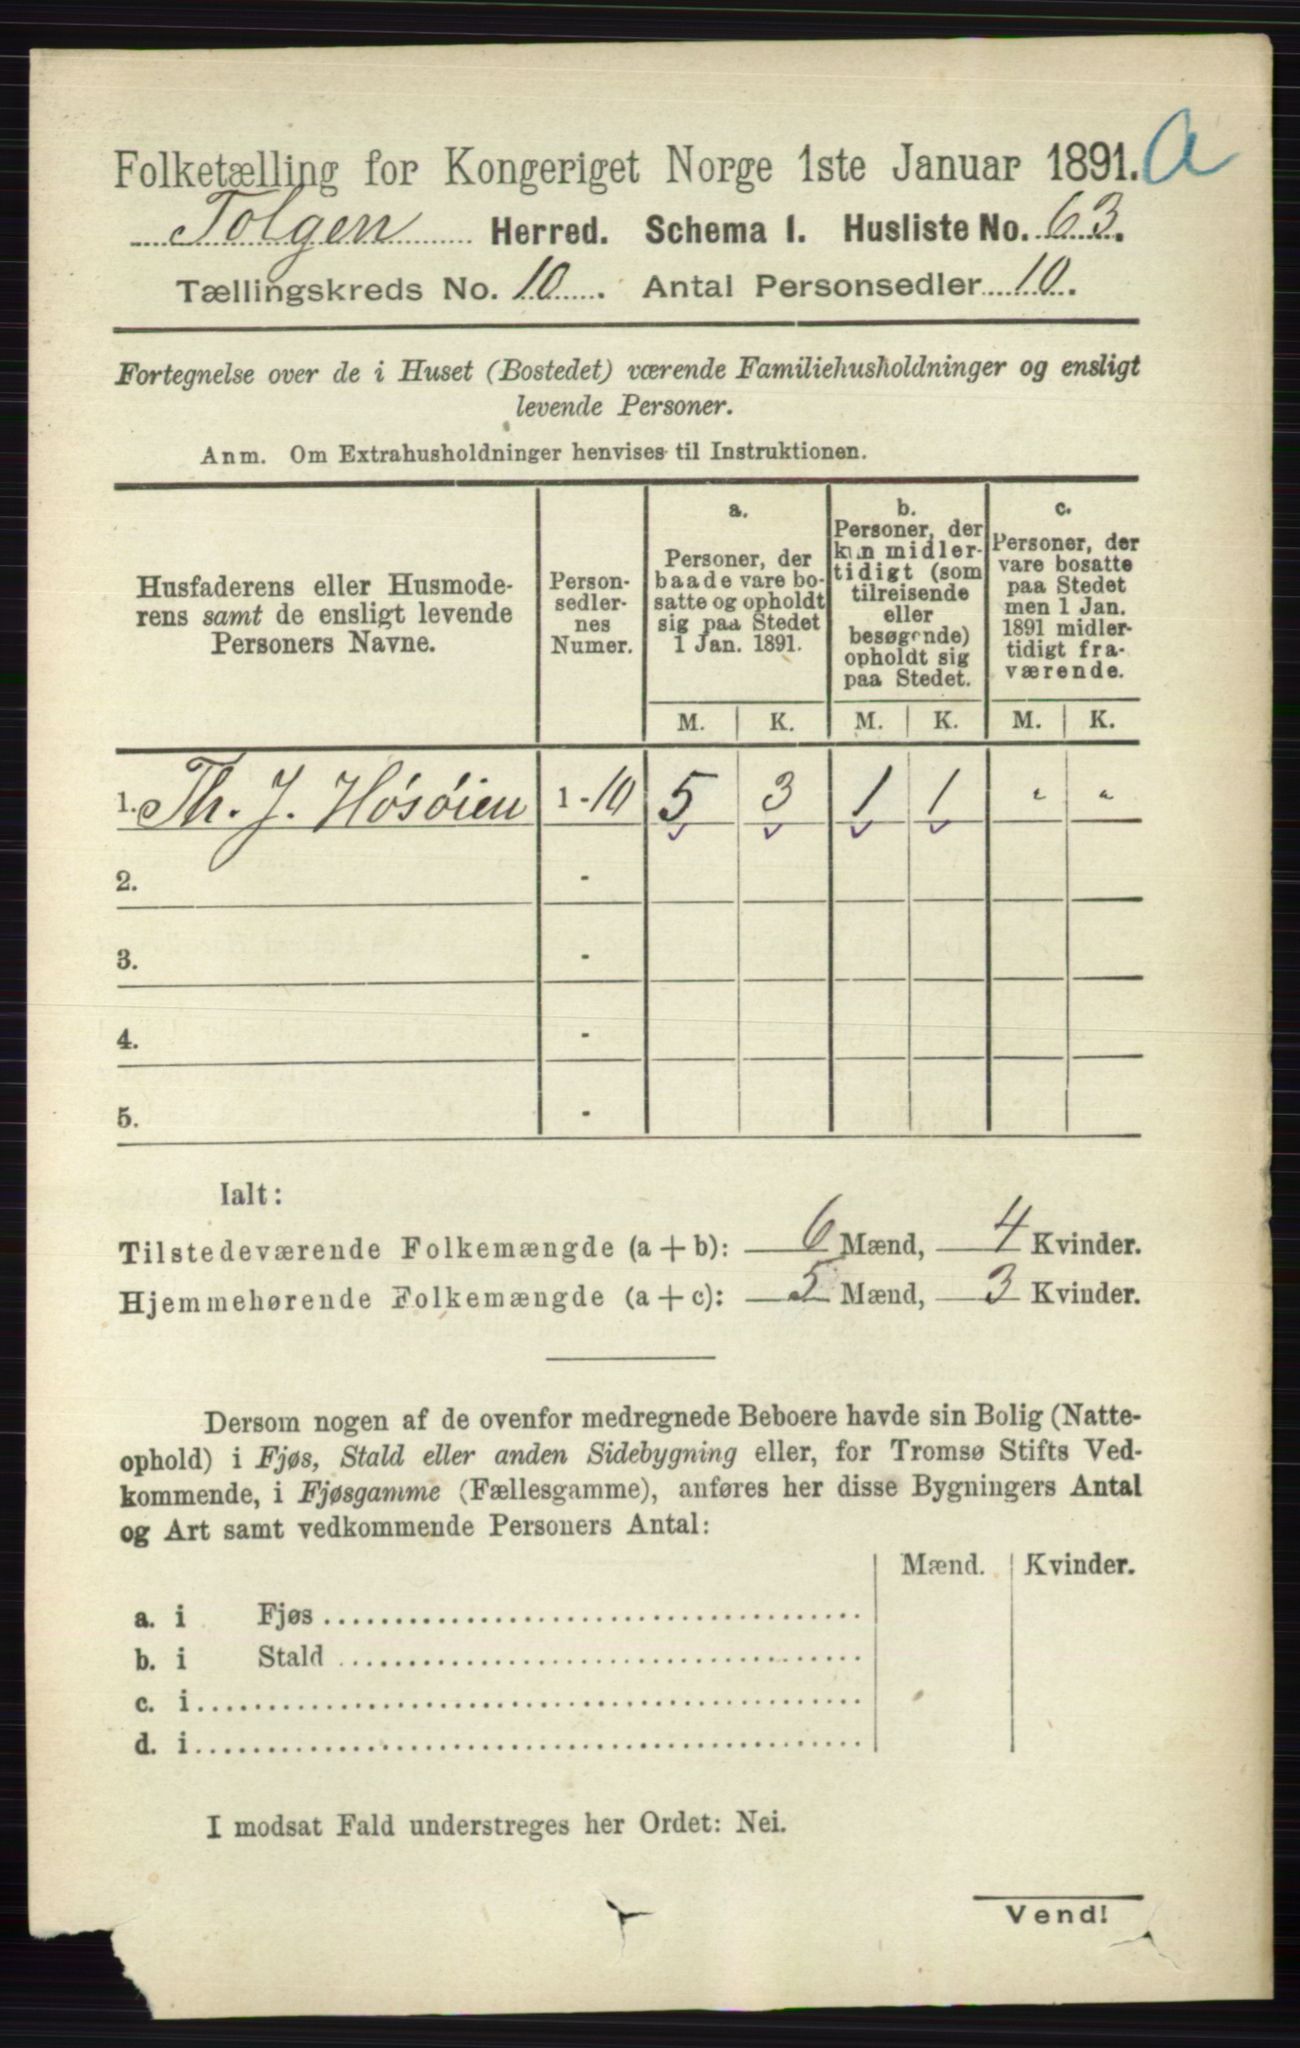 Folketælling for Kongeriget Norge 1ste Januar 1891. a
Tolgen Herred. Schema I. Husliste No. 63.
Tællingskreds No. 10. Antal Personsedler 10.
Fortegnelse over de i Huset (Bostedet) værende Familiehusholdninger og ensligt
levende Personer.
Anm. Om Extrahusholdninger henvises til Instruktionen.
Husfaderens eller Husmode-
rens samt de ensligt levende
Personers Navne.
Person-
sedler-
nes
Numer.
a.
Personer, der
baade vare bo-
satte og opholdt
sig paa Stedet
1 Jan. 1891.
b.
Personer, der
kun midler-
tidigt (som
tilreisende
eller
besøgende)
opholdt sig
paa Stedet.
c.
Personer, der
vare bosatte
paa Stedet
men 1 Jan.
1891 midler-
tidigt fra-
værende.
M. K. M. K. M. K.
1. Th. J. Høsøien 1 - 10 5 3 1 1 " "
2. -
3. -
4. -
5. -
Ialt:
Tilstedeværende Folkemængde (a + b): 6 Mænd, 4 Kvinder.
Hjemmehørende Folkemængde (a + c): 5 Mænd, 3 Kvinder.
Dersom nogen af de ovenfor medregnede Beboere havde sin Bolig (Natte-
ophold) i Fjøs, Stald eller anden Sidebygning eller, for Tromsø Stifts Ved-
kommende, i Fjøsgamme (Fællesgamme), anføres her disse Bygningers Antal
og Art samt vedkommende Personers Antal:
Mænd. Kvinder.
a. i Fjøs
b. i Stald
c. i
d. i
I modsat Fald understreges her Ordet: Nei.
Vend!